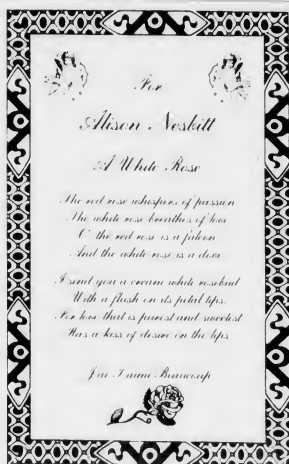 For
Alison Nesbitt
A White Rose
The red rose whispers of passion
The white rose breathes of love
O' the red rose is a falcon
And the white rose is a dove
I send you a cream white rosebud
With a flush on its petal tips
For love that is purest and sweetest
Has a kiss of desire on the lips
J'ai T'aime Beaucoup